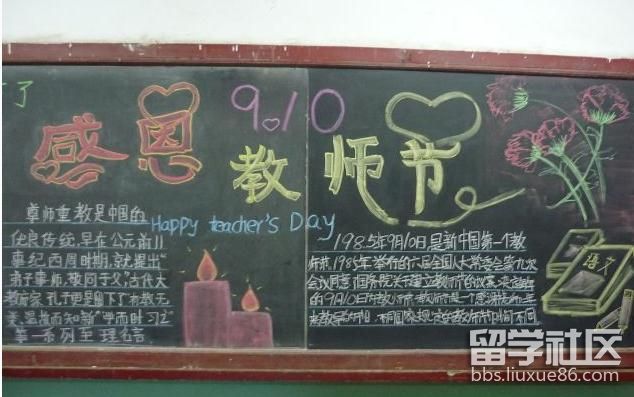 了
感恩
9.10
教师节
Happy teacher's Day
尊师重教是中国的
优良传统,早在公元前11
世纪西周时期,就提出"
弟子事师,敬同于父"古代大
教育家孔子更是留下了有教无
类,温故而知新"学而时习之"
等一系列至理名言
1985年9月10日是新中国第一个教
师节.1985年举行的六届全国人大常委会第九次
会议同意国务院关于建立教师节的议案,决定每年
的9月10日为教师节.教师节是一个感谢老师
教导的节日,不同国家规定的教师节时间不同
语文
留学社区
bbs.liuxue86.com